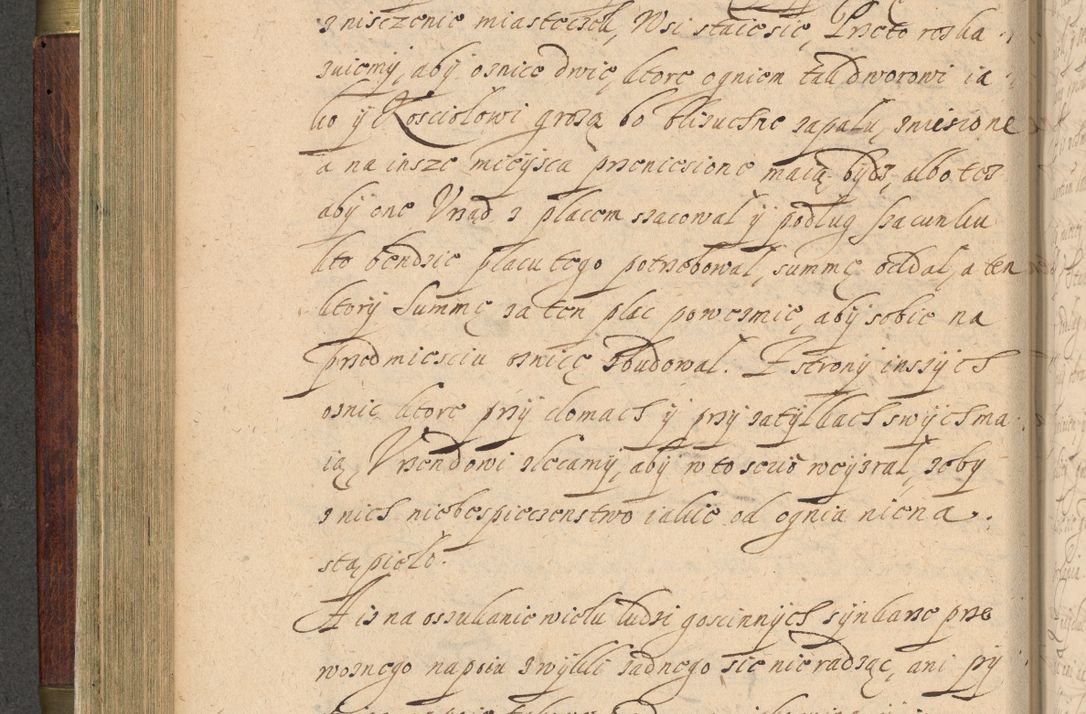 znisczenie miasteczka, Wsi staie sie, Przeto roska
zuiemy, aby osnice dwie, ktore ogniem tak dworowi ia
ko y Kosciolowi grozą bo blisuchne zapalu, zniesione
a na insze mieysca przeniesione maią bydz, albo tez
aby one Vrząd z placem szacowal y podlug szacunku
kto bendzie placu tego potrzebowal, summę oddal, a ten
ktory Summę za ten plac powezmie, aby sobie na
przedmiesciu osnicę zbudowal. Z strony inszych
osnic ktore przy domach y przy zatylkach swych ma
ią, Vrzendowi zlecamy, aby w to scisło weyzral, zeby
z nich niebespieczenstwo iakie od ognia niena
stąpiolo.
A isz na oszukanie wielu ludzi goscinnych synkarze prze
woznego napoiu zwykli zadnego sie nie radząc, ani py